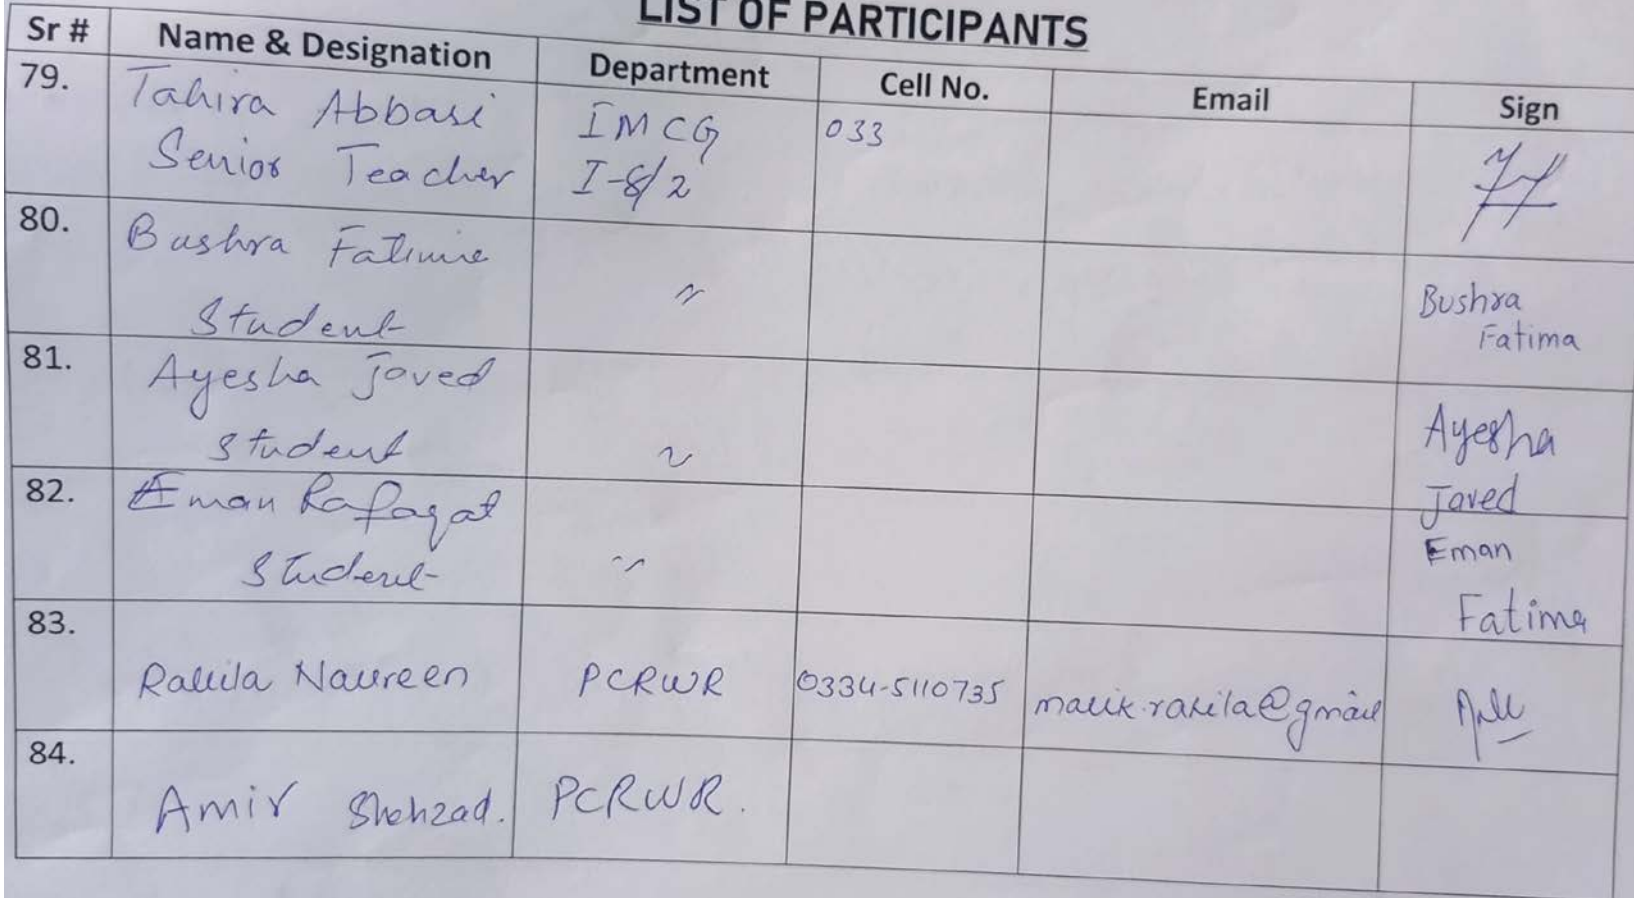 LIST OF PARTICIPANTS
Sr # Name & Designation Department Cell No. Email Sign
79. Tahira Abbasi IMCG 033
Senior Teacher I-8/2
80. Bushra Fatima 〃 Bushra
Student Fatima
81. Ayesha Javed Ayesha
Student 〃 Javed
82. Eman Rafaqat Eman
Student 〃 Fatima
83. Rahila Naureen PCRWR 0334-5110735 malik.rahila@gmail
84. Amir Shehzad. PCRWR.